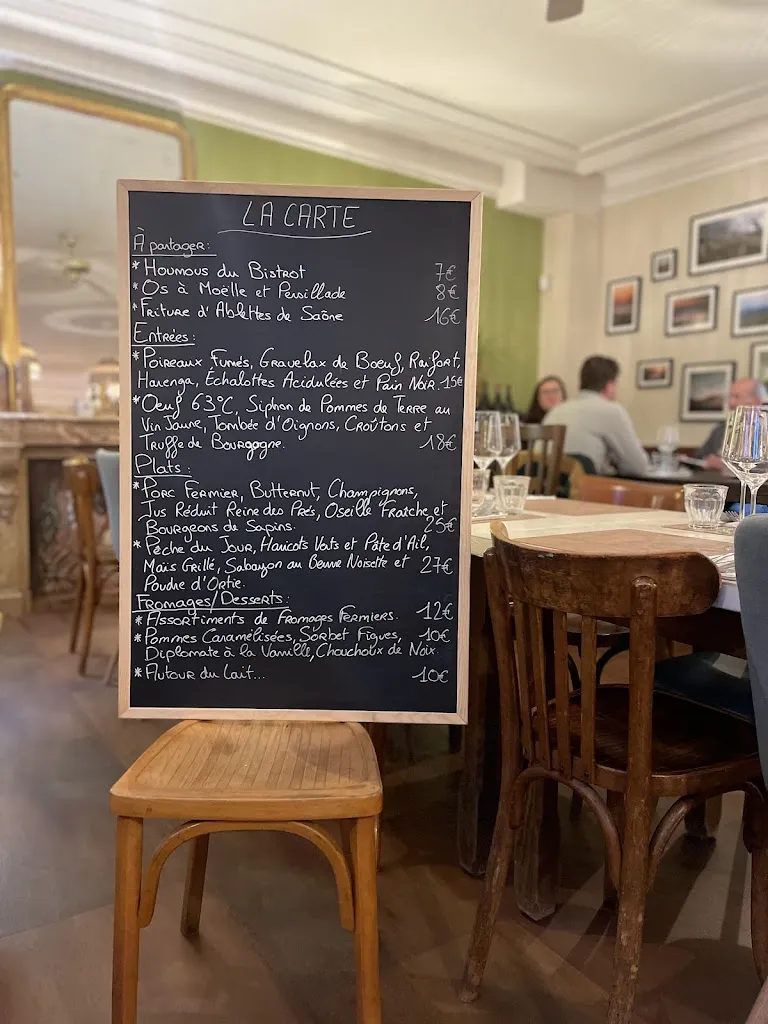 LA CARTE
À partager:
* Houmous du Bistrot 7€
* Os à Moëlle et Persillade 8€
* Friture d'Ablettes de Saône 16€
Entrées:
* Poireaux Fumés, Gravelax de Boeuf, Raifort,
Harenga, Échalottes Acidulées et Pain Noir. 15€
* Oeuf 63°C, Siphon de Pommes de Terre au
Vin Jaune, Tombée d'Oignons, Croûtons et
Truffe de Bourgogne. 18€
Plats:
* Porc Fermier, Butternut, Champignons,
Jus Réduit Reine des Prés, Oseille Fraîche et
Bourgeons de Sapins. 25€
* Pêche du Jour, Haricots Verts et Pâte d'Ail,
Maïs Grillé, Sabayon au Beurre Noisette et 27€
Poudre d'Ortie.
Fromages/Desserts:
* Assortiments de Fromages Fermiers. 12€
* Pommes Caramélisées, Sorbet Figues, 10€
Diplomate à la Vanille, Chouchoux de Noix.
* Autour du Lait... 10€